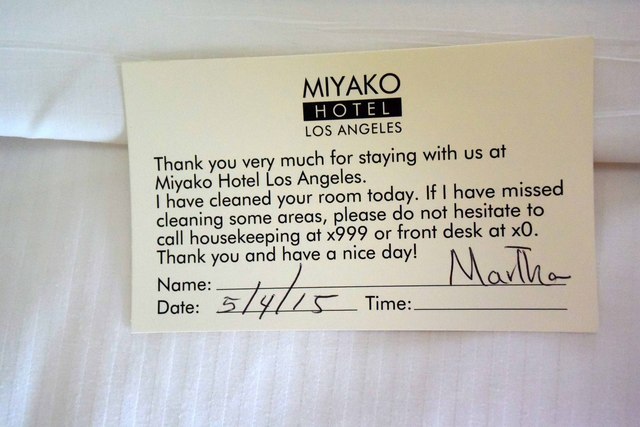 MIYAKO
HOTEL
LOS ANGELES
Thank you very much for staying with us at
Miyako Hotel Los Angeles.
I have cleaned your room today. If I have missed
cleaning some areas, please do not hesitate to
call housekeeping at x999 or front desk at x0.
Thank you and have a nice day!
Name: Martha
Date: 5/4/15 Time: